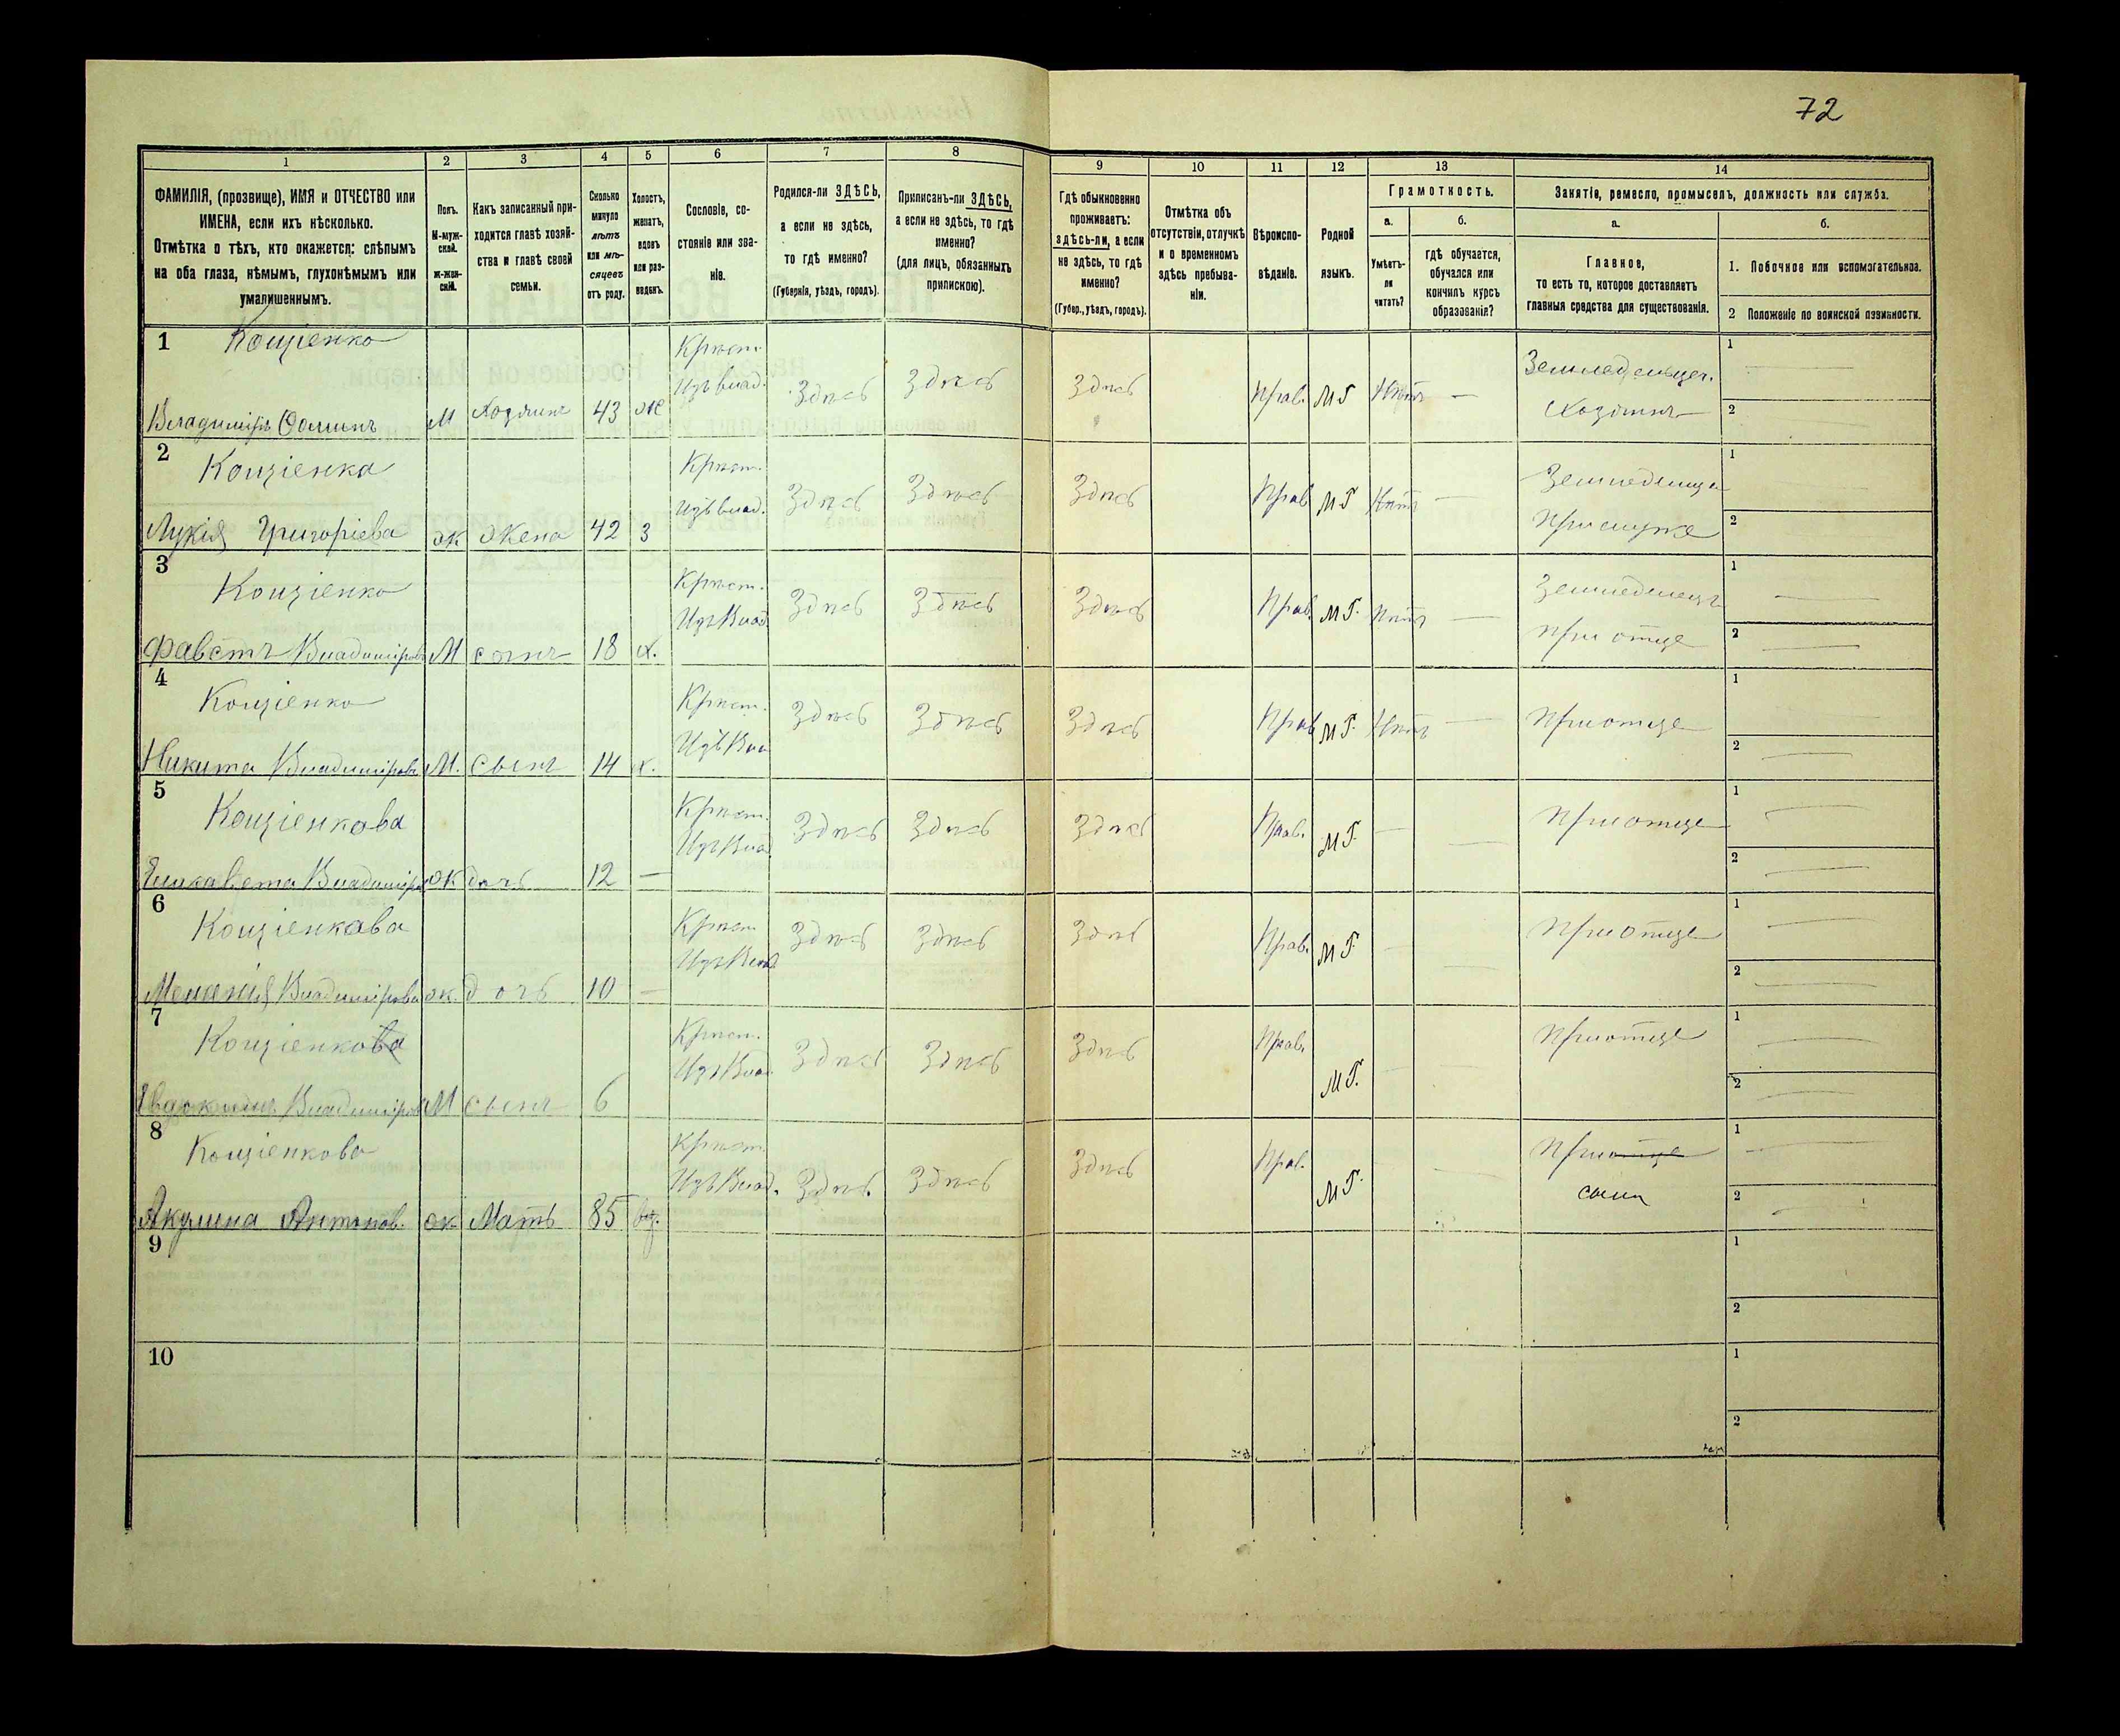 72
1 2 3 4 5 6 7 8 9 10 11 12 13 14
ФАМИЛІЯ, (прозвище), ИМЯ и ОТЧЕСТВО или
ИМЕНА, если ихъ нѣсколько.
Отмѣтка о тѣхъ, кто окажется: слѣпымъ
на оба глаза, нѣмымъ, глухонѣмымъ или
умалишеннымъ.
Полъ.
М-муж-
ской.
ж-жен-
скій.
Какъ записанный при-
ходится главѣ хозяй-
ства и главѣ своей
семьи.
Сколько
минуло
лѣтъ
или мѣ-
сяцевъ
отъ роду.
Холостъ,
женатъ,
вдовъ
или раз-
веденъ.
Сословіе, со-
стояніе или зва-
ніе.
Родился-ли ЗДѢСЬ,
а если не здѣсь,
то гдѣ именно?
(Губернія, уѣздъ, городъ).
Приписанъ-ли ЗДѢСЬ,
а если не здѣсь, то гдѣ
именно?
(для лицъ, обязанныхъ
припискою).
Гдѣ обыкновенно
проживаетъ:
здѣсь-ли, а если
не здѣсь, то гдѣ
именно?
(Губер., уѣздъ, городъ).
Отмѣтка объ
отсутствіи, отлучкѣ
и о временномъ
здѣсь пребыва-
ніи.
Вѣроиспо-
вѣданіе.
Родной
языкъ.
Грамотность.
а.
Умѣетъ-
ли
читать?
б.
гдѣ обучается,
обучался или
кончилъ курсъ
образованія?
Занятіе, ремесло, промыселъ, должность или служба.
а.
Главное,
то есть то, которое доставляетъ
главныя средства для существованія.
б.
1. Побочное или вспомогательное.
2 Положеніе по воинской повинности.
1 Кощіенко Крѣст. Земледѣлецъ. 1
Изъ влад. Здѣсь Здѣсь Здѣсь Прав. МГ Нѣтъ —
Владиміръ Ѳоминъ М Хозяинъ 43 ж Хозяинъ 2
2 Кощіенка Крѣст. Земледѣлица 1
Изъ влад. Здѣсь Здѣсь Здѣсь Прав. МГ Нѣтъ —
Лукія Григоріева ж жена 42 З При мужѣ 2
3 Кощіенко Крѣст. Земледѣлецъ 1
Изъ Влад Здѣсь Здѣсь Здѣсь Прав. МГ. Нѣтъ —
Фавстъ Владиміровъ М сынъ 18 х. При отцѣ 2
4 Кощіенко Крѣст. 1
Изъ Вла Здѣсь Здѣсь Здѣсь Прав МГ. Нѣтъ — При отцѣ
Никита Владиміровъ М. Сынъ 14 х. 2
5 Кощіенкова Крѣст. 1
Изъ Влад Здѣсь Здѣсь Здѣсь Прав. МГ. — — При отцѣ
Елизавета Владимір ж дочь 12 — 2
6 Кощіенкова Крѣст. 1
Изъ Влад Здѣсь Здѣсь Здѣсь Прав. МГ. — — При отцѣ
Меланія Владимірова ж. дочь 10 — 2
7 Кощіенкова Крѣст. 1
Изъ Влад. Здѣсь Здѣсь Здѣсь Прав. МГ. — — При отцѣ
Евдокимъ Владиміров М сынъ 6 2
8 Кощіенкова Крѣст. При отцѣ 1
Изъ Влад. Здѣсь Здѣсь Здѣсь Прав. МГ. — сынѣ
Акулина Антонов. ж Мать 85 вд. 2
9 1
2
10 1
2